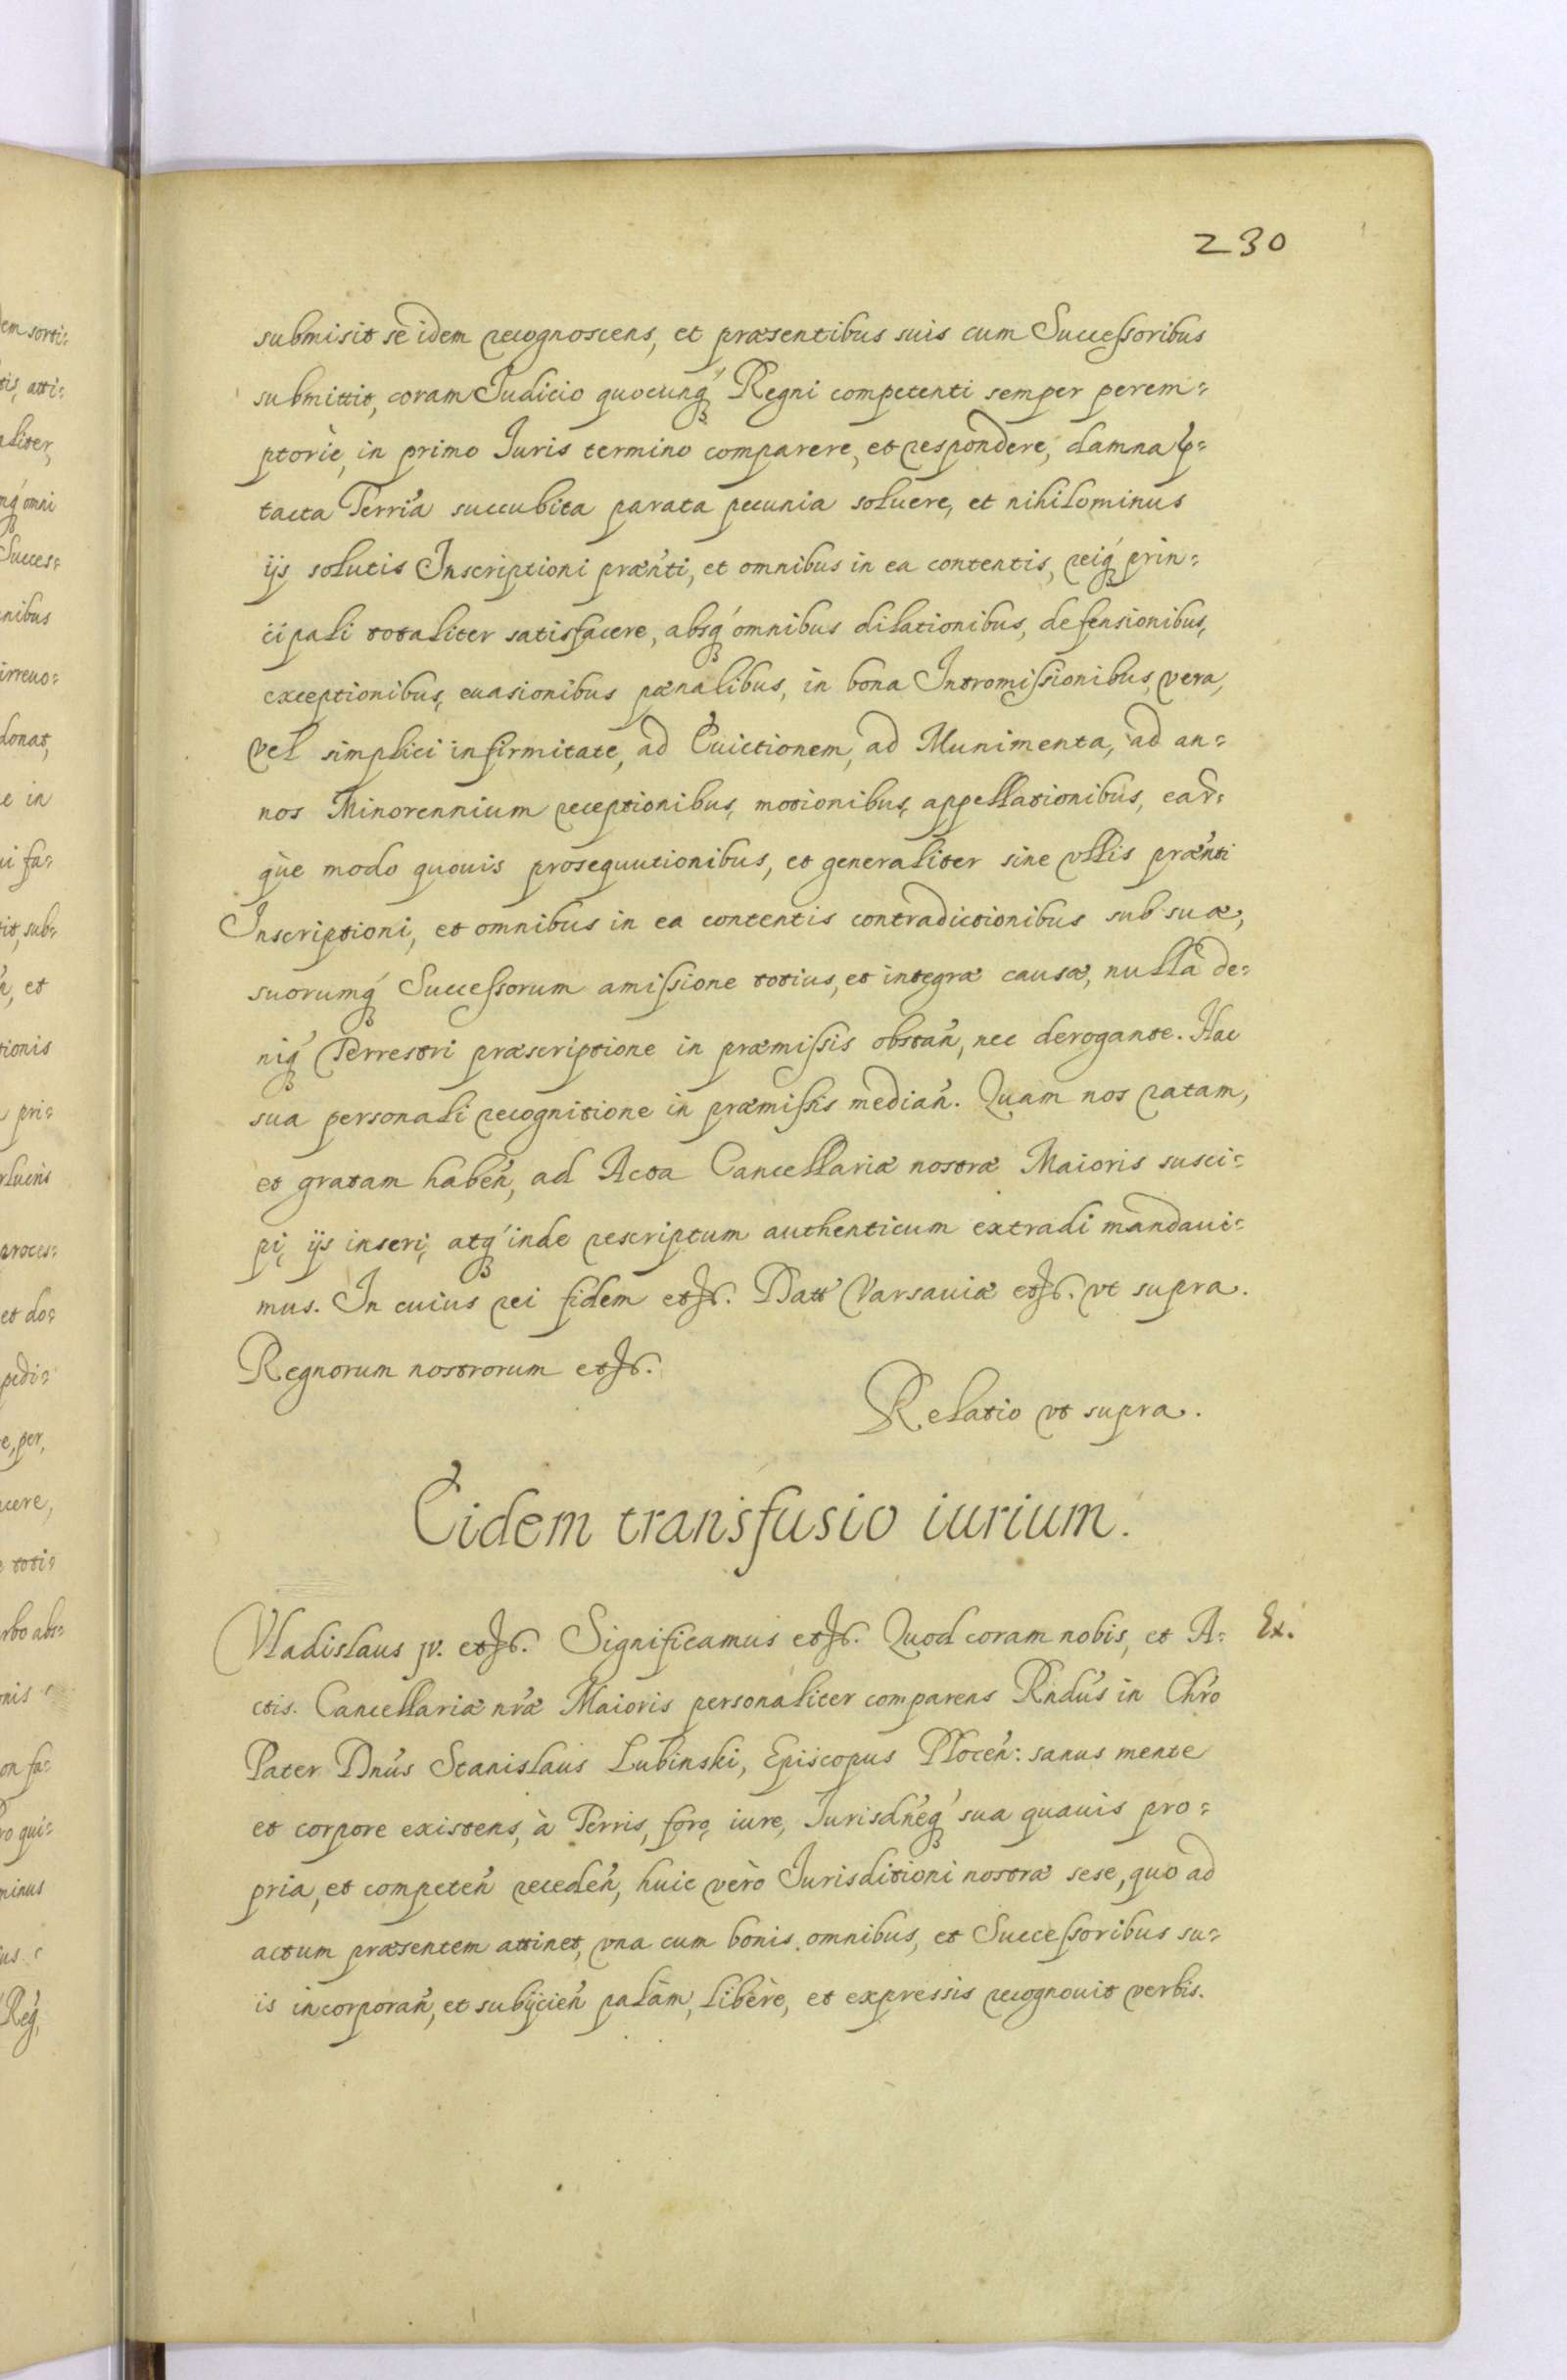 230
submisit se idem recognoscens, et præsentibus suis cum Successoribus
submittit, coram Iudicio quocunq́ Regni competenti semper perem=
ptoriè, in primo Iuris termino comparere, et respondere, damna p̱=
tacta Terria succubita parata pecunia soluere, et nihilominus
ijs solutis Inscriptioni præńti, et omnibus in ea contentis, reiq́ prin=
cipali totaliter satisfacere, absq́ omnibus dilationibus, defensionibus,
exceptionibus, euasionibus pœnalibus, in bona Intromissionibus, vera,
vel simplici infirmitate, ad Euictionem, ad Munimenta, ad an=
nos Minorennium receptionibus, motionibus, appellationibus, ear=
q̀ue modo quouis prosequutionibus, et generaliter sine vllis præńti
Inscriptioni, et omnibus in ea contentis contradictionibus sub suæ,
suorumq́ Successorum amissione totius, et integræ causæ, nulla de=
niq́ Terrestri præscriptione in præmissis obstań, nec derogante. Hac
sua personali recognitione in præmissis mediań. Quam nos ratam,
et gratam habeń, ad Acta Cancellariæ nostræ Maioris susci=
pi, ijs inseri, atq́ inde rescriptum authenticum extradi mandaui=
mus. In cuius rei fidem etc. Datt Varsauiæ etc. vt supra.
Regnorum nostrorum etc.
Relatio vt supra.
Eidem transfusio iurium.
Vladislaus jv. etc. Significamus etc. Quod coram nobis, et A= Ex.
ctis. Cancellariæ nr̃æ Maioris personaliter comparens Rndús in Chr̃o
Pater Dnús Stanislaus Lubinski, Episcopus Ploceń: sanus mente
et corpore existens, à Terris, foro, iure, Iurisdńeq́ sua quauis pro=
pria, et competeń recedeń, huic verò Iurisditioni nostræ sese, quo ad
actum præsentem attinet, vna cum bonis omnibus, et Successoribus su=
is incorporań, et subijcień palàm, liberè, et expressis recognouit verbis.